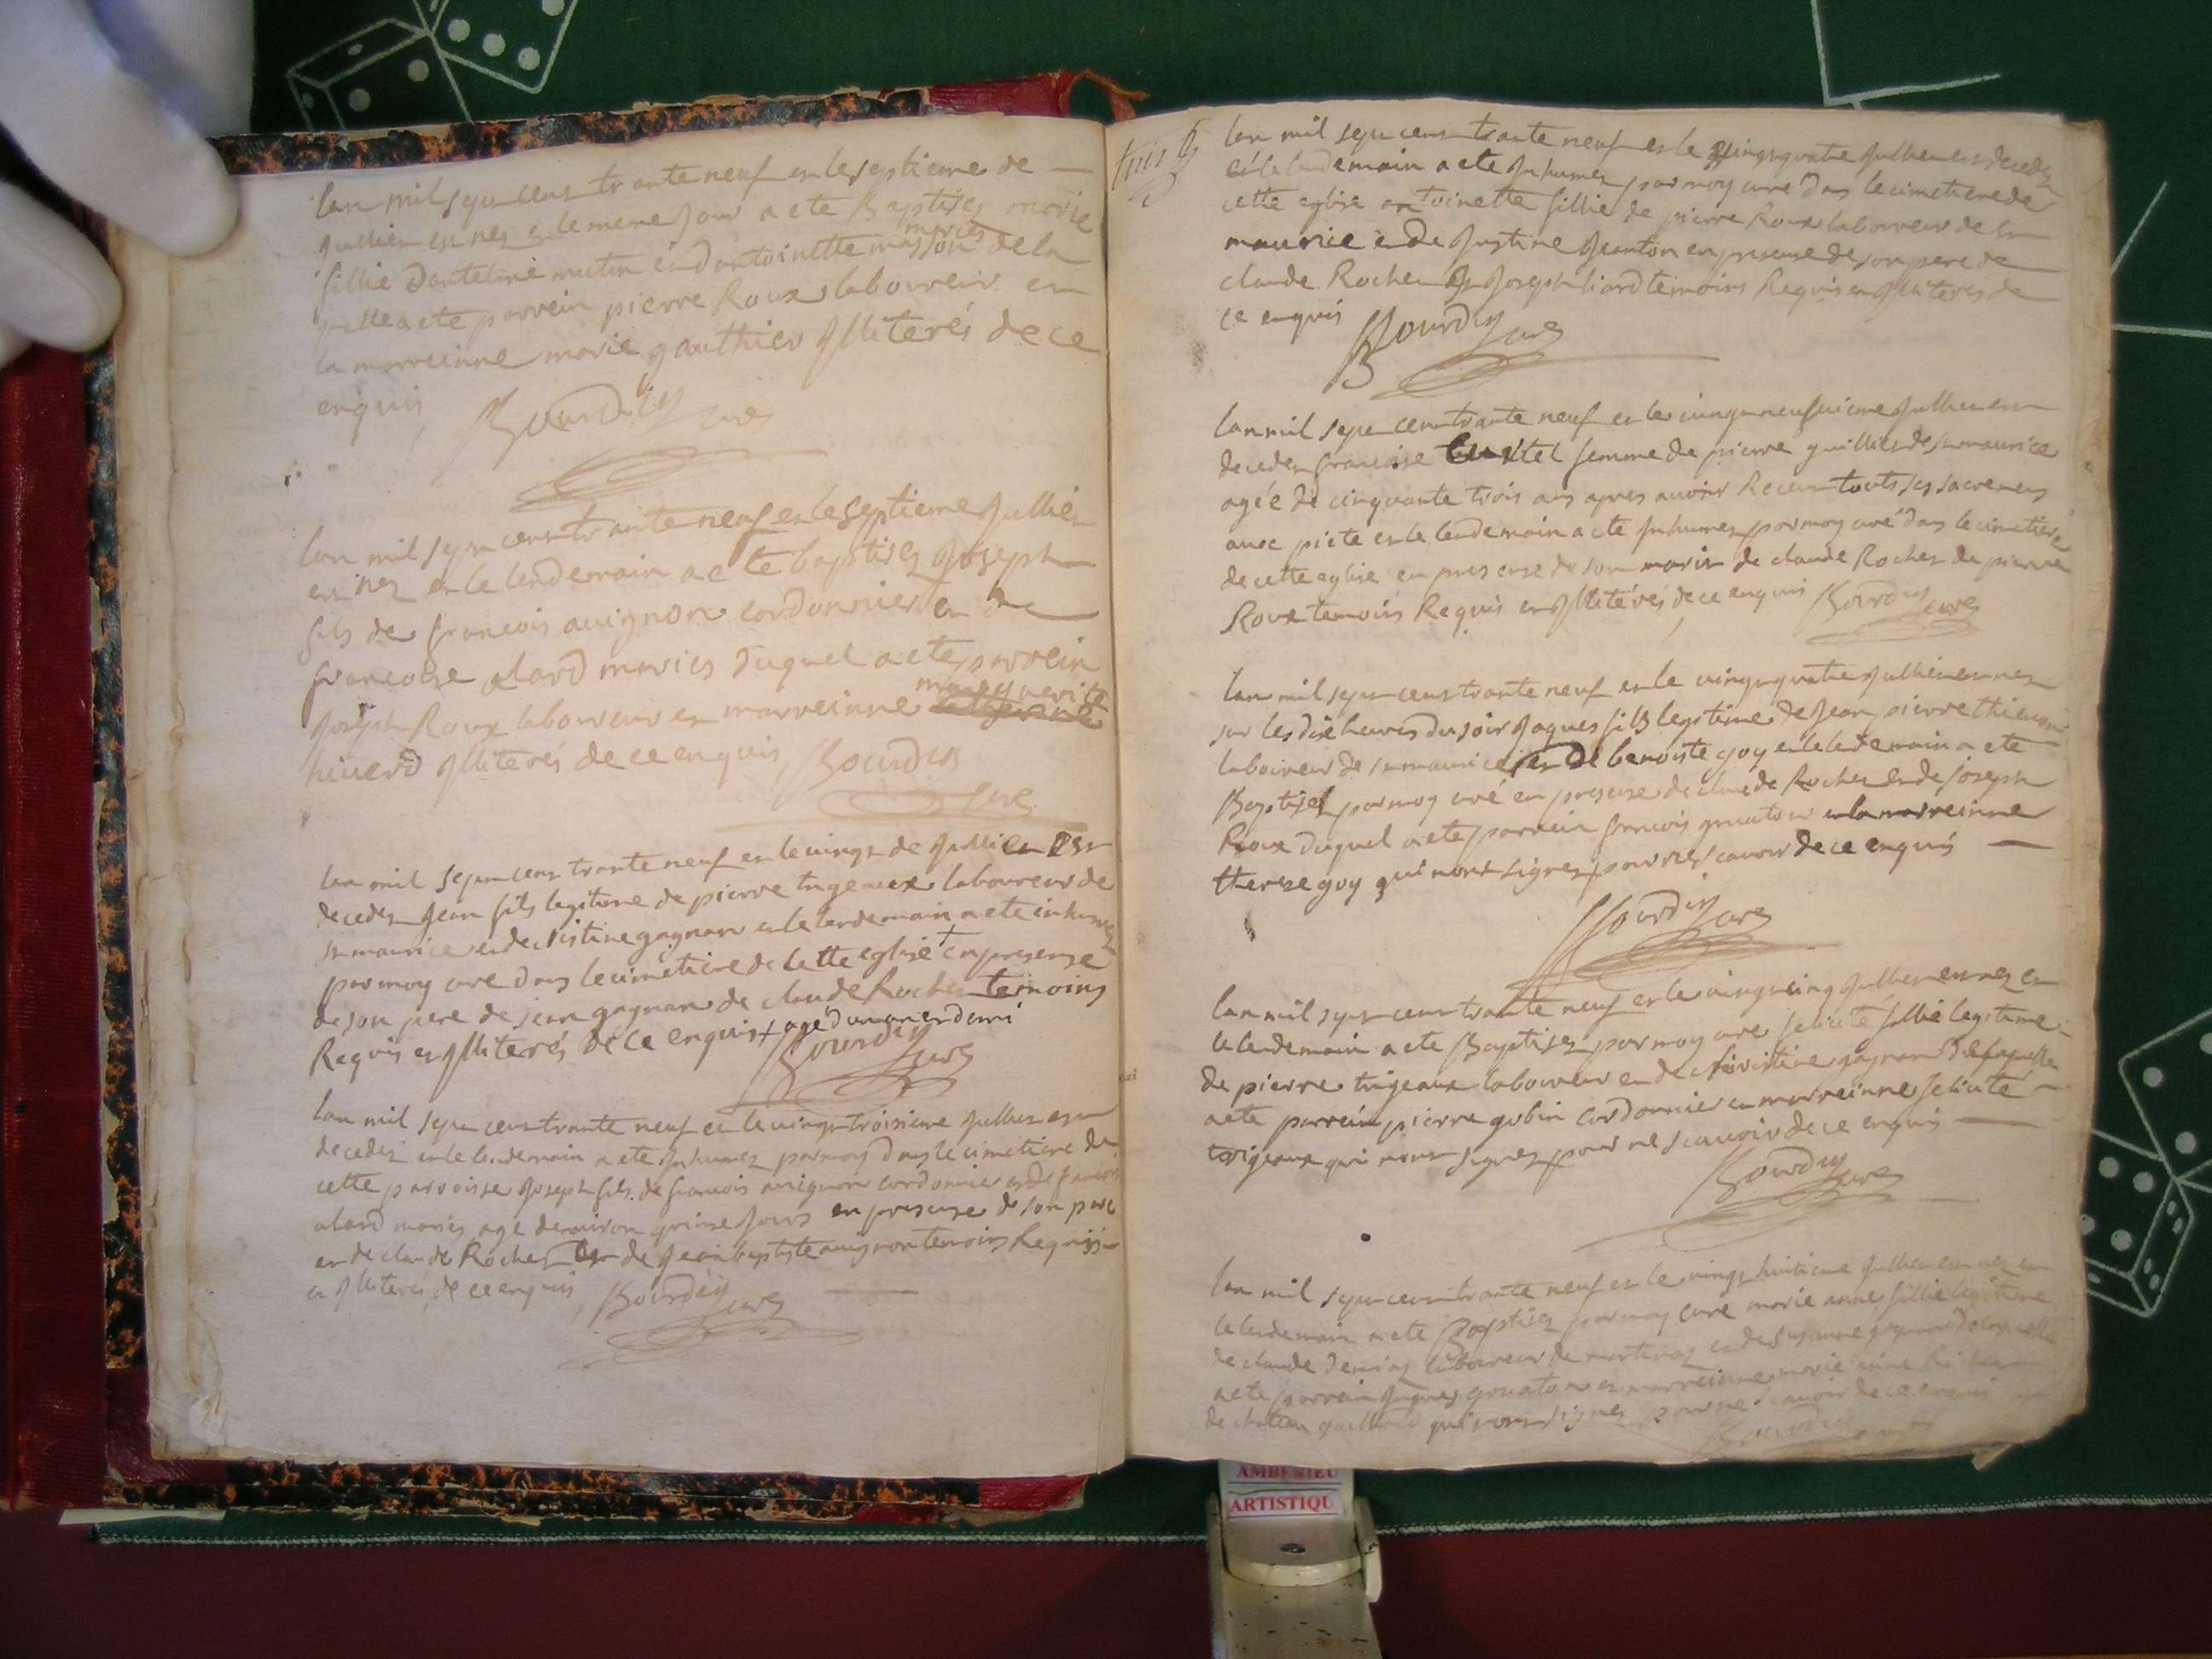 lan mil sept cent trante neuf et le septieme de
Jullier est nez et le meme Jour a ete Baptisez marie
fillie danteline mutin et dantoinette masson mariés de la
quelle a ete parrein pierre Roux laboureur et
la marreinne marie gauthier Illiterés de ce
enquis Bourdin curé
lan mil sept cent trante neuf et le septieme Jullier
est nez et le lendemain a ete baptisez Joseph
fils de francois avignon cordonnier et de
francoise alard mariés duquel a ete parrein
Joseph Roux laboureur et marreinne marguerite
hiuerd Illiterés de ce enquis Bourdin
curé
lan mil sept cent trante neuf et le vingt de Jullier est
decedez Jean fils legitime de pierre trigeaux laboureur de
st maurice et de christine gagnan et le lendemain a ete inhumez
par moy curé dans le cimetiere de cette eglise + en presense
de son pere de jean gagnan de claude Rocher temoins
Requis et Illiterés de ce enquis + agé d'un an et demi
Bourdin curé
lan mil sept cent trante neuf et le vingt troisieme Jullier est
decedez et le lendemain a ete Inhumez par moy dans le cimetiere de
cette parroisse Joseph fils de francois avignon cordonnier et de francoise
alard mariés agé denviron quinse Jours en presense de son pere
et de claude Rocher et de Jean baptiste avignon temoins Requis
et Illiterés de ce enquis Bourdin curé
lan mil sept cent trante neuf et le vingt quatre Jullier est decedez
et le lendemain a ete Inhumez par moy curé dans le cimetiere de
cette eglise antoinette fillie de pierre Roux laboureur de st
maurice et de Justine Jeanton en presense de son pere de
claude Rocher et Joseph liard temoins Requis et Illiterés de
ce enquis Bourdin curé
lan mil sept cent trante neuf et le vingt neufuieme Jullier est
decedez francoise femme de pierre guillier de st maurice
agée de cinquante trois ans apres avoir Receut touts ses sacremens
avec piete et le lendemain a ete Inhumez par moy curé dans le cimetiere
de cette eglise en presense de son marit de claude Rocher de pierre
Roux temoins Requis et Illiterés de ce enquis Bourdin curé
lan mil sept cent trante neuf et le vingt quatre Jullier est nez
sur les dix heures du soir Jaques fils legitime de Jean pierre
laboureur de st maurice et de benoite goy et le lendemain a ete
Baptisez par moy curé en presense de claude Rocher et de Joseph
Roux duquel a ete parrein francois et la marreinne
therese goy qui nont signez pour ne scavoir de ce enquis
Bourdin curé
lan mil sept cent trante neuf et le vingt cinq Jullier est nez et
le lendemain a ete Baptisez par moy curé felicité fillie legitime
de pierre trigeaux laboureur et de christine gagnan de laquelle
a ete parrein pierre gobin cordonnier et marreinne felicité
trigeaux qui nont signez pour ne scavoir de ce enquis
Bourdin curé
lan mil sept cent trante neuf et le vingt huitieme Jullier est nez et
le lendemain a ete Baptisez par moy curé marie anne fillie legitime
de claude laboureur de et de Susanne de laquelle
a ete parrein Jaques et marreinne marie anne
de chateau gaillard qui nont signez pour ne scavoir de ce enquis
Bourdin curé
AMBERIEU
ARTISTIQU